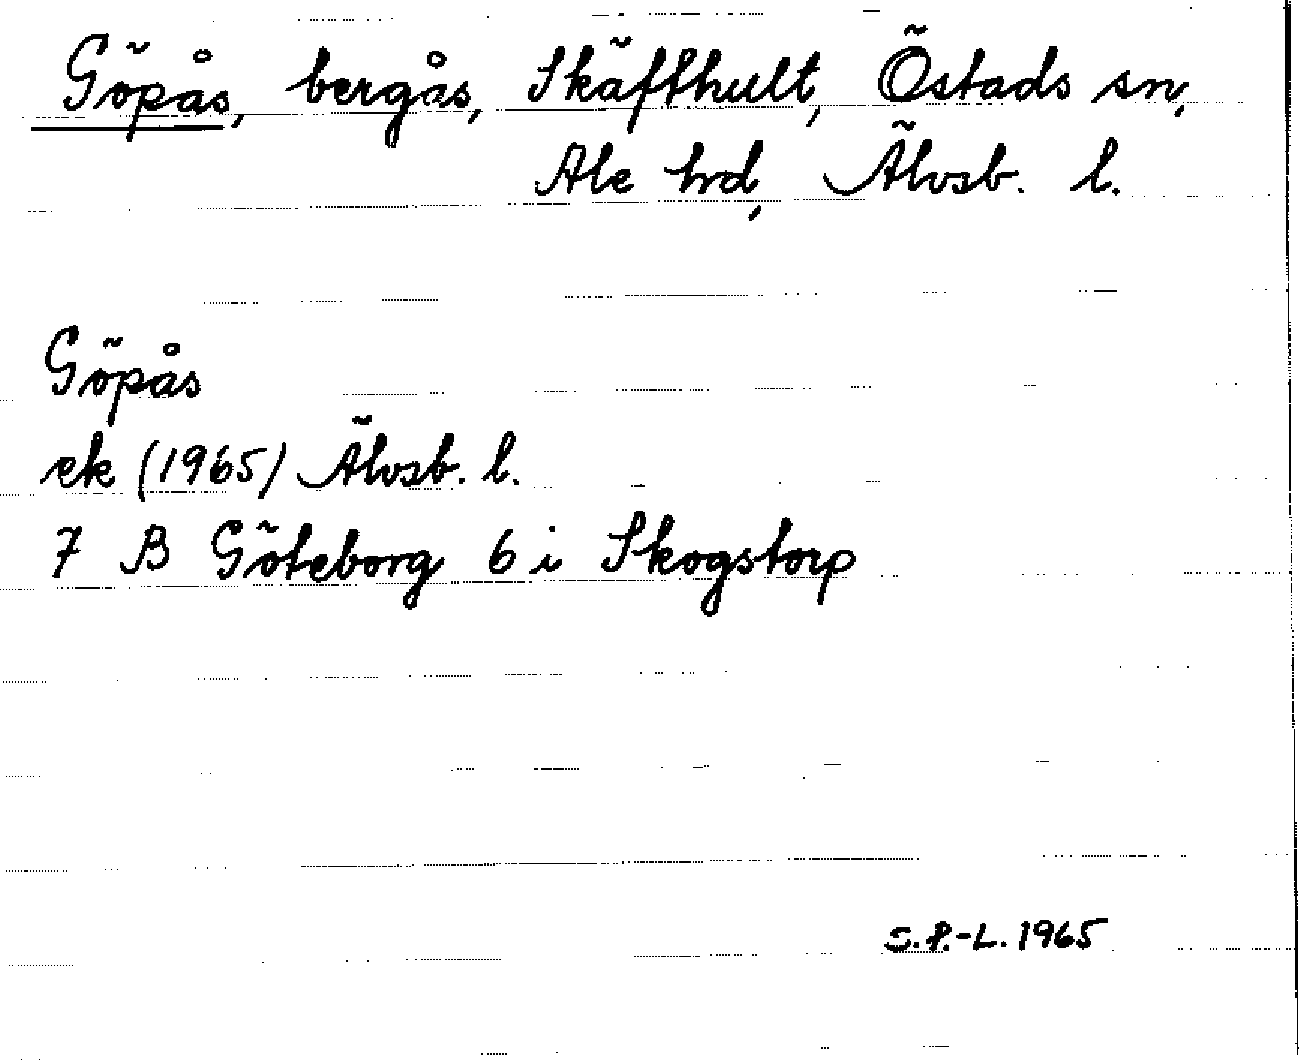 Göpås, bergås, Skäfthult, Östads sn,
Ale hrd, Älvsb. l.
Göpås
ek (1965) Älvsb. l.
7 B Göteborg 6 i Skogstorp
S.P.-L. 1965